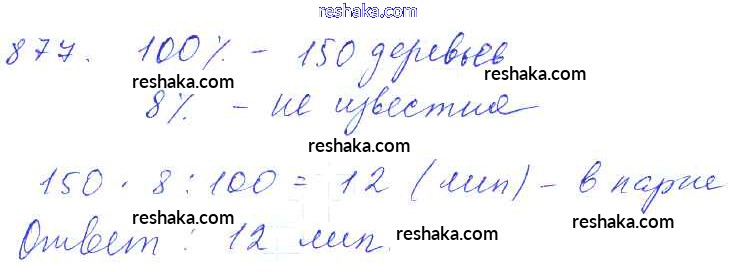 reshaka.com
877. 100% - 150 деревьев
reshaka.com reshaka.com
8% - не известно
reshaka.com
reshaka.com
150 · 8 : 100 = 12 (лип) - в парке
reshaka.com reshaka.com
Ответ : 12 лип.
reshaka.com